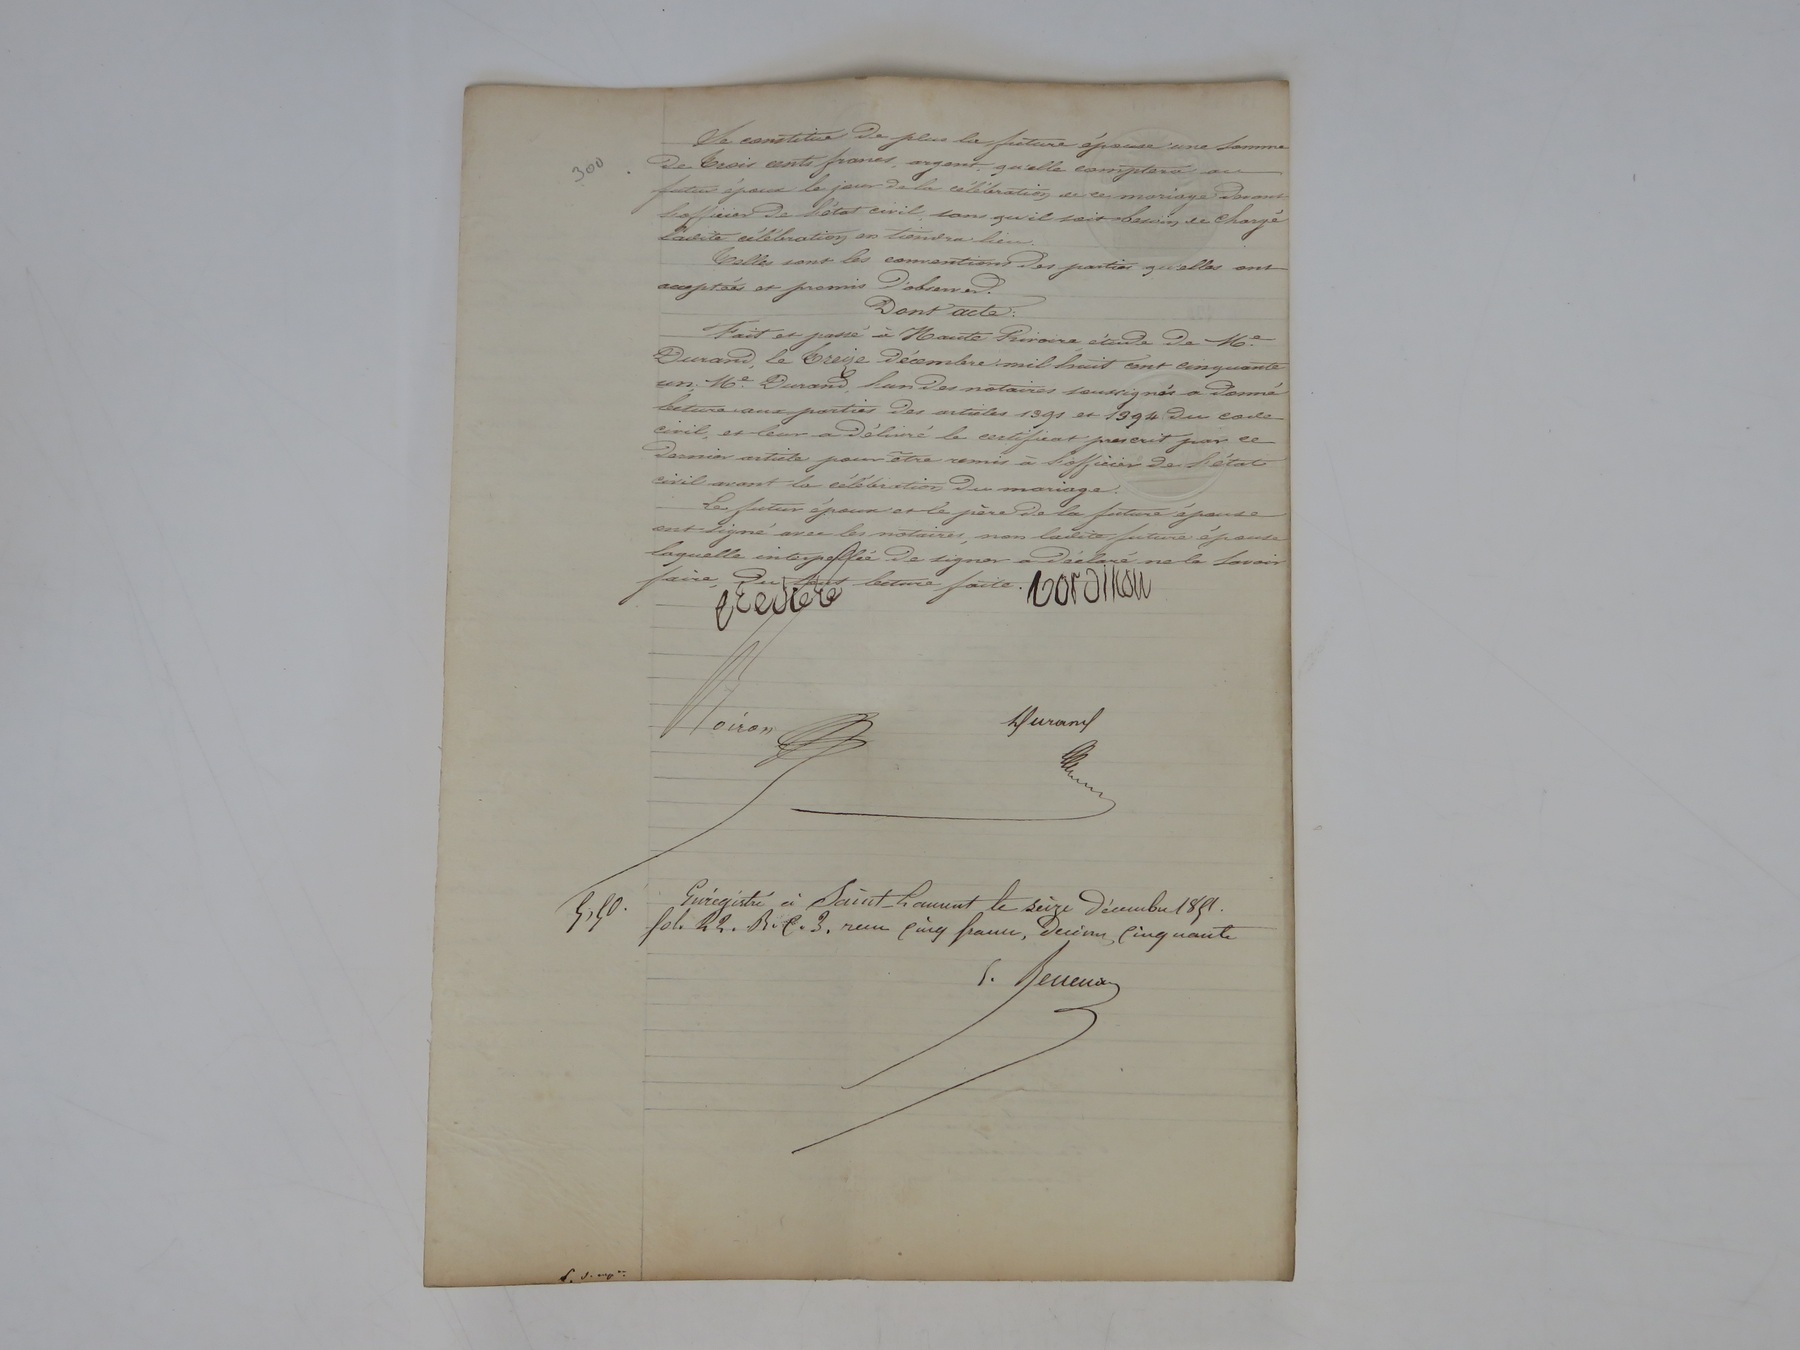 Se constitue de plus la future épouse une somme
300
de trois cents francs, argent, qu'elle comptera au
futur époux le jour de la célébration de ce mariage devant
l'officier de l'état civil, sans qu'il soit besoin de
ladite célébration en tiendra lieu.
Telles sont les conventions des parties qu'elles ont
acceptées et promis d'observer.
Dont acte:
Fait et passé à Haute Rivoire, étude de Me
Durand, le treize décembre mil huit cent cinquante
un. Me Durand, l'un des notaires soussignés a donné
lecture aux parties des articles 1391 et 1394 du code
civil, et leur a délivré le certificat prescrit par ce
dernier article pour être remis à l'officier de l'état
civil avant la célébration du mariage.
Le futur époux et le père de la future épouse
ont signé avec les notaires, non ladite future épouse
laquelle interpellée de signer a déclaré ne le savoir
faire, du tout lecture faite.
Durand
5,50.
Enregistré à Saint-Laurent le seize décembre 1851.
fol. 22. R. C. 3. reçu cinq francs, décime cinquante